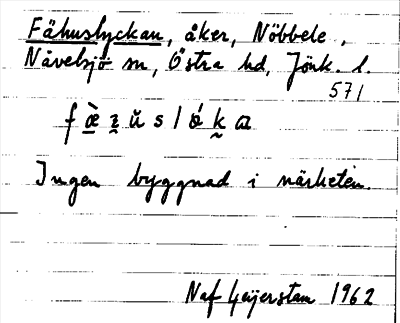 Fähuslyckan, åker, Nöbbele,
Nävelsjö sn, Östra hd, Jönk. l.
571
Ingen byggnad i närheten.
Naf Geijerstam 1962